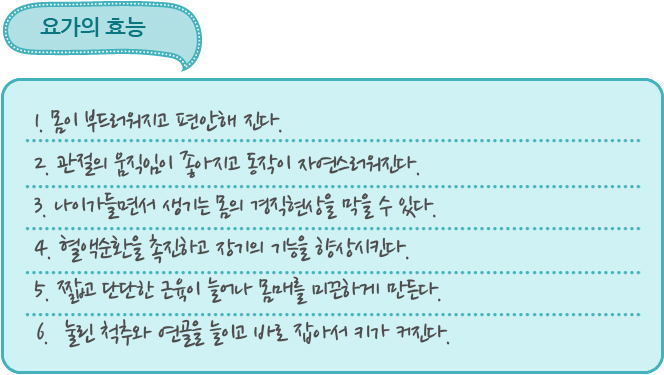 요가의 효능
1. 몸이 부드러워지고 편안해 진다.
2. 관절의 움직임이 좋아지고 동작이 자연스러워진다.
3. 나이가들면서 생기는 몸의 경직현상을 막을 수 있다.
4. 혈액순환을 촉진하고 장기의 기능을 향상시킨다.
5. 짧고 단단한 근육이 늘어나 몸매를 미끈하게 만든다.
6. 눌린 척추와 연골을 늘이고 바로 잡아서 키가 커진다.